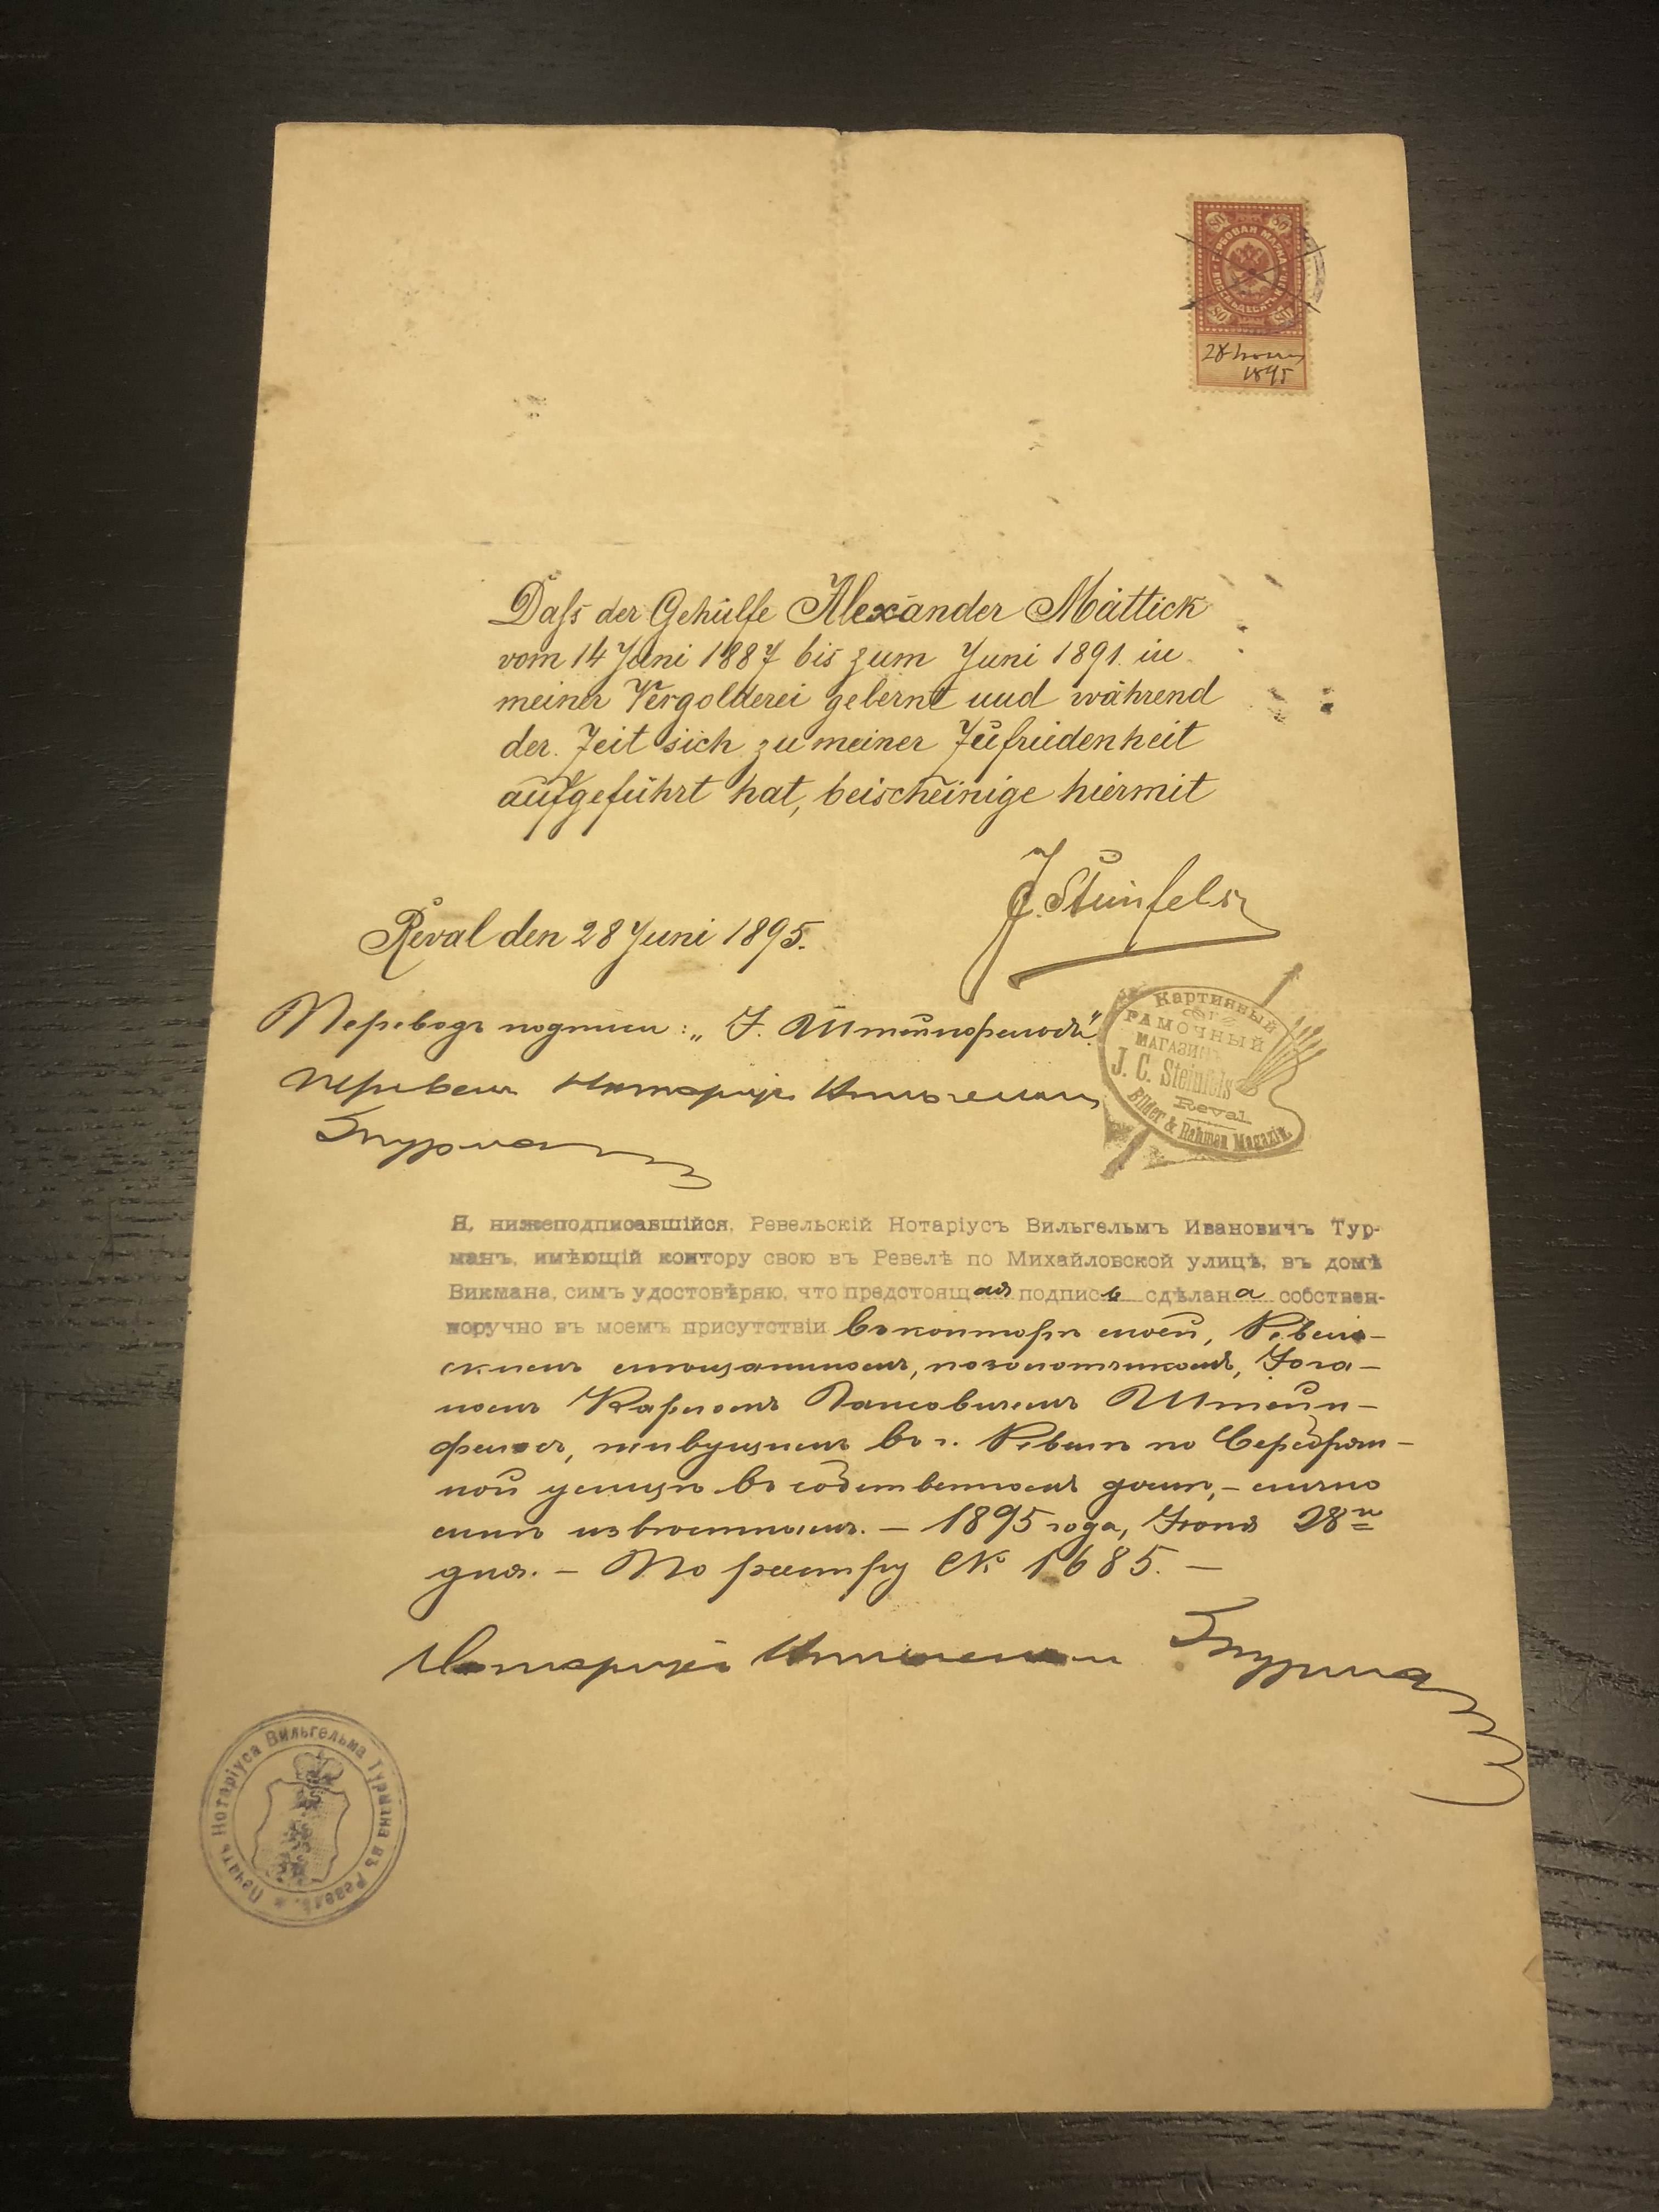 80 80
ГЕРБОВАЯ МАРКА
ВОСЕМЬДЕСЯТЪ КОП.
80 80
28 Іюня
1895
Daſs der Gehülfe Alexander Mättick
vom 14 Juni 1887 bis zum Juni 1891. in
meiner Vergolderei gelernt und während
der Zeit sich zu meiner Zufriedenheit
aufgeführt hat, beischeinige hiermit
J. Steinfels
Reval den 28 Juni 1895.
Переводъ подписи: „І. Штейнфельсъ".
Перевелъ Нотаріусъ Вильгельмъ
Турманъ
Картинный
&
РАМОЧНЫЙ
МАГАЗИНЪ
J. C. Steinfels
Reval.
Bilder & Rahmen Magazin.
Я, нижеподписавшійся, Ревельскій Нотаріусъ Вильгельмъ Ивановичъ Тур-
манъ, имѣющій контору свою въ Ревелѣ по Михайловской улицѣ, въ домѣ
Викмана, симъ удостовѣряю, что предстоящая подпись сдѣлана собствен-
норучно въ моемъ присутствіи въ конторѣ моей, Ревель-
скимъ мѣщаниномъ, позолотчикомъ, Іога-
номъ Карломъ Гансовичемъ Штейн-
фельсъ, живущимъ въ г. Ревелѣ по Серебрян-
ной улицѣ въ собственномъ домѣ, – лично
мнѣ извѣстнымъ. – 1895 года, Іюня 28го
дня. – По реестру № 1685. –
Нотаріусъ Вильгельмъ Турманъ
Печать Нотаріуса Вильгельма Турмана въ Ревелѣ.